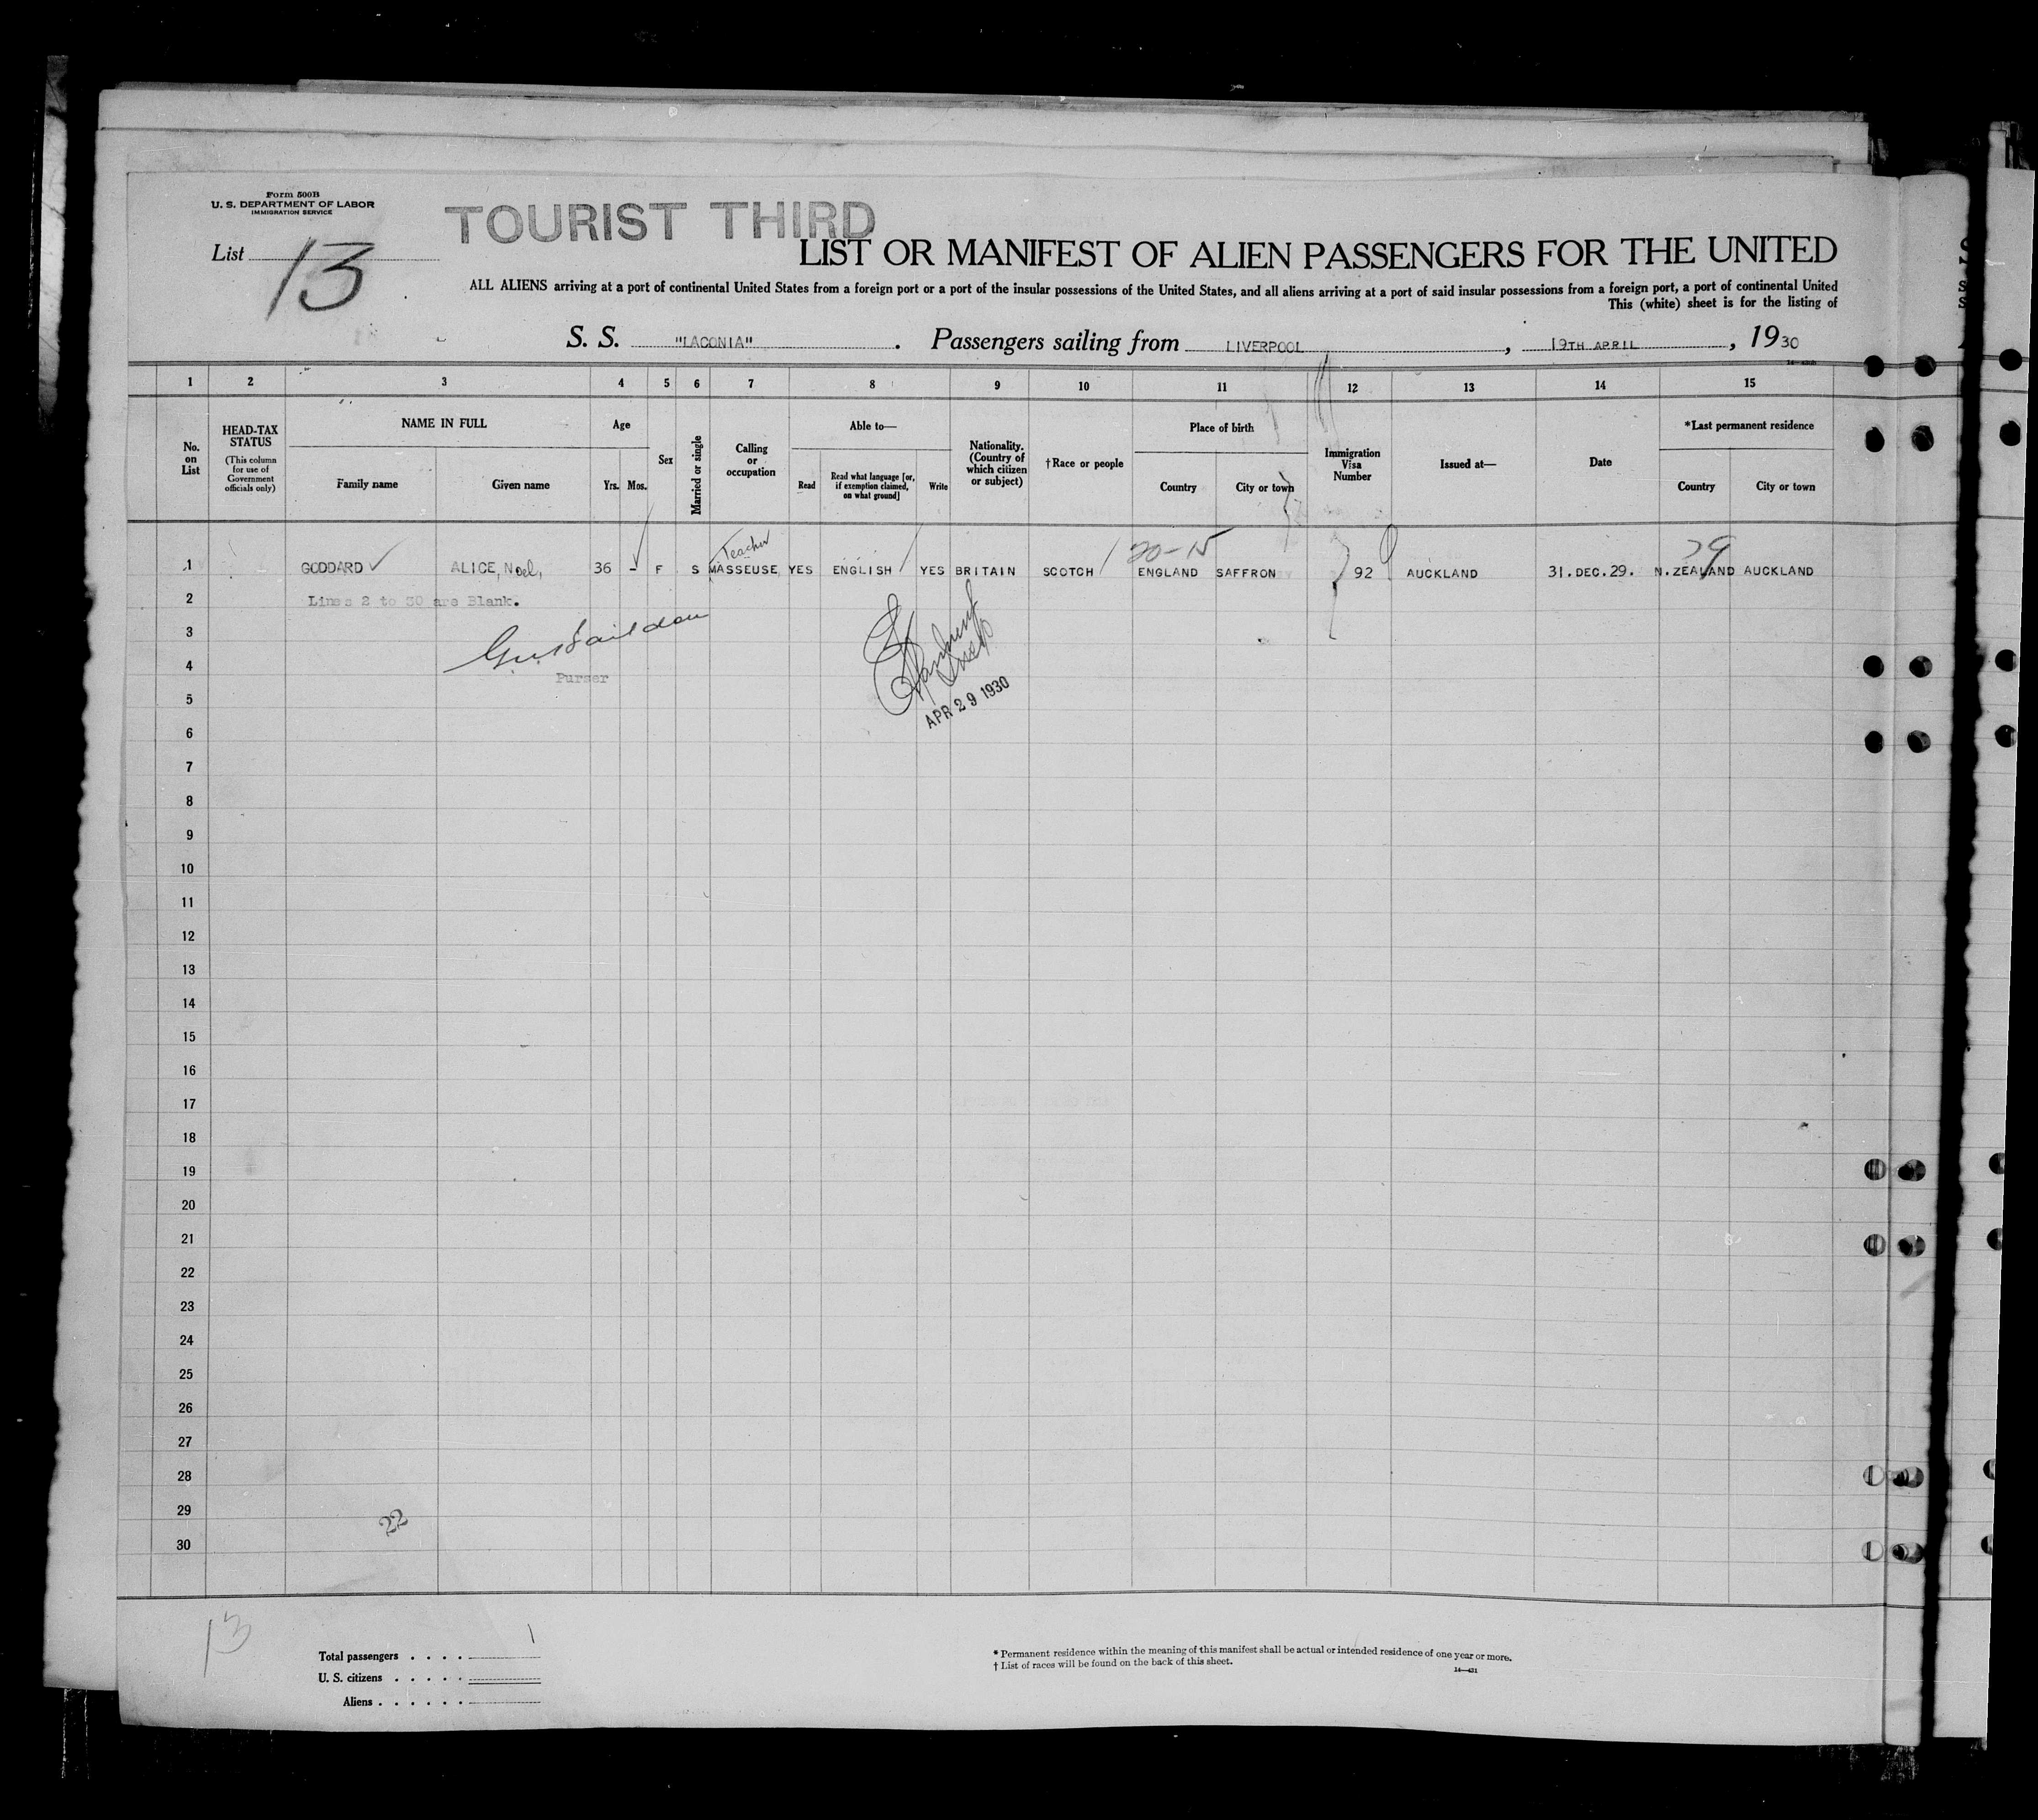 Form 500B
U. S. DEPARTMENT OF LABOR
IMMIGRATION SERVICE
TOURIST THIRD
List 13
LIST OR MANIFEST OF ALIEN PASSENGERS FOR THE UNITED
ALL ALIENS arriving at a port of continental United States from a foreign port or a port of the insular possessions of the United States, and all aliens arriving at a port of said insular possessions from a foreign port, a port of continental United
This (white) sheet is for the listing of
S. S. "LACONIA". Passengers sailing from LIVERPOOL, 19TH APRIL, 1930
1 2 3 4 5 6 7 8 9 10 11 12 13 14 15
No. on List
HEAD-TAX STATUS
(This column for use of Government officials only)
NAME IN FULL
Family name Given name
Age
Yrs. Mos.
Sex
Married or single
Calling or occupation
Able to—
Read
Read what language [or, if exemption claimed, on what ground]
Write
Nationality. (Country of which citizen or subject)
†Race or people
Place of birth
Country City or town
Immigration Visa Number
Issued at—
Date
*Last permanent residence
Country City or town
Teacher 20-15 29
1 GODDARD ALICE, Noel, 36 - F S MASSEUSE YES ENGLISH YES BRITAIN SCOTCH ENGLAND SAFFRON 92 AUCKLAND 31.DEC.29. N.ZEALAND AUCKLAND
2 Lines 2 to 30 are Blank.
3
4
Purser
5
APR 29 1930
6
7
8
9
10
11
12
13
14
15
16
17
18
19
20
21
22
23
24
25
26
27
28
29
22
30
13
Total passengers . . . . 1
U. S. citizens . . . . .
Aliens . . . . . .
* Permanent residence within the meaning of this manifest shall be actual or intended residence of one year or more.
† List of races will be found on the back of this sheet.
14—431